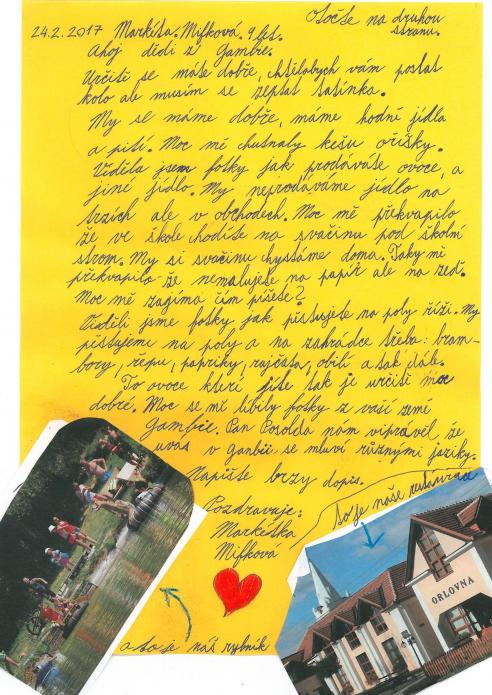 Otočte na druhou
stranu.
24.2.2017 Markéta Mifková 9 let.
Ahoj dědi z Gambie.
Určitě se máte dobře, chtělabych vám poslat
kolo ale musím se zeptat tatínka.
My se máme dobře, máme hodně jídla
a pití. Moc mě chutnaly kešu oříšky.
Viděla jsem fotky jak prodáváte ovoce, a
jiné jídlo. My neprodáváme jídlo na
trzích ale v obchodech. Moc mě překvapilo
že ve škole chodíte na svačinu pod školní
strom. My si svačinu chystáme doma. Taky mě
překvapilo že nemalujete na papír ale na zeď.
Moc mě zajímá čím píšete?
Viděli jsme fotky jak pěstujete na poly rýži. My
pěstujeme na poly a na zahrádce třeba: bram-
bory, řepu, papriky, rajčata, obilí a tak dále.
To ovoce kteří jíte tak je určitě moc
dobré. Moc se mě líbily fotky z vaší země
Gambie. Pan Posolda nam viprávěl že
uvás v Ganbie se mluví různými jaziky.
Napište brzy dopis.
Pozdravuje:
Markétka
Mifková
to je naše restaurace
ORLOVNA
a to je náš rybník